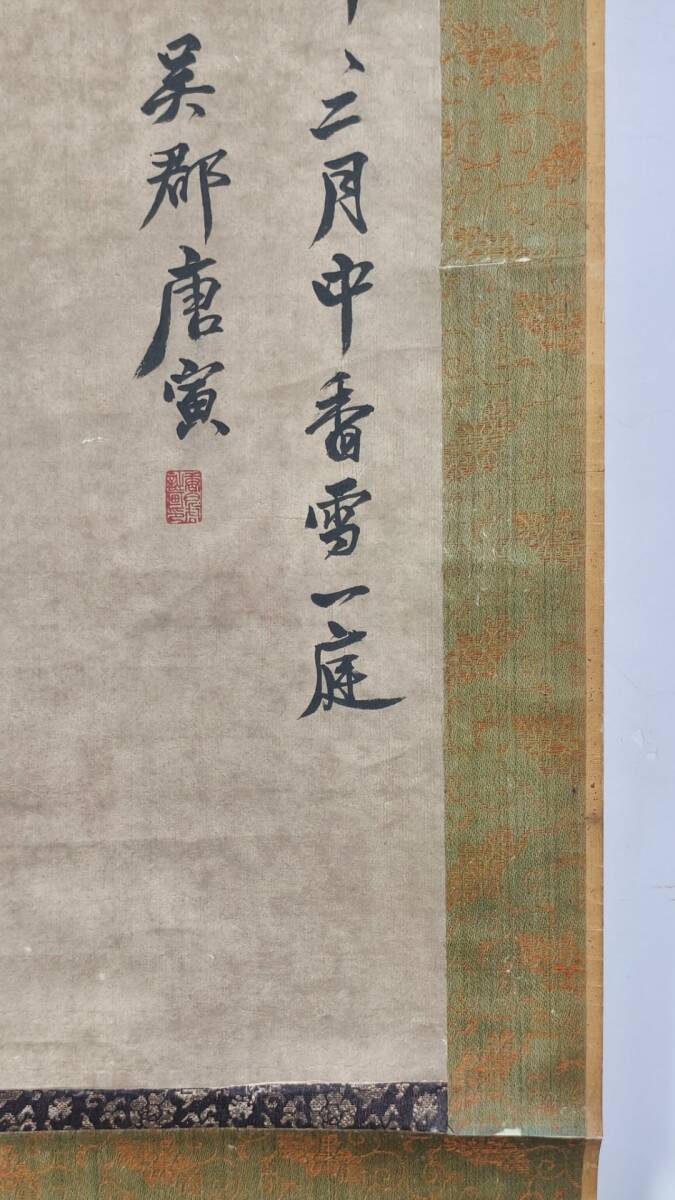 、二月中香雪一庭
吴郡唐寅